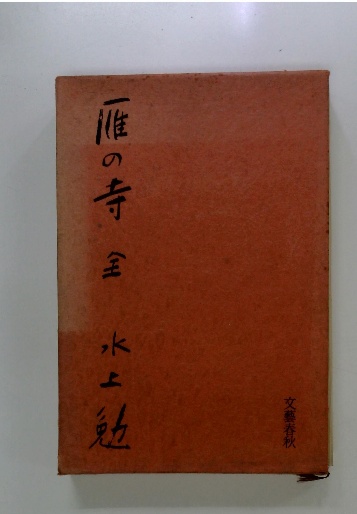 雁の寺 全 水上勉
文藝春秋